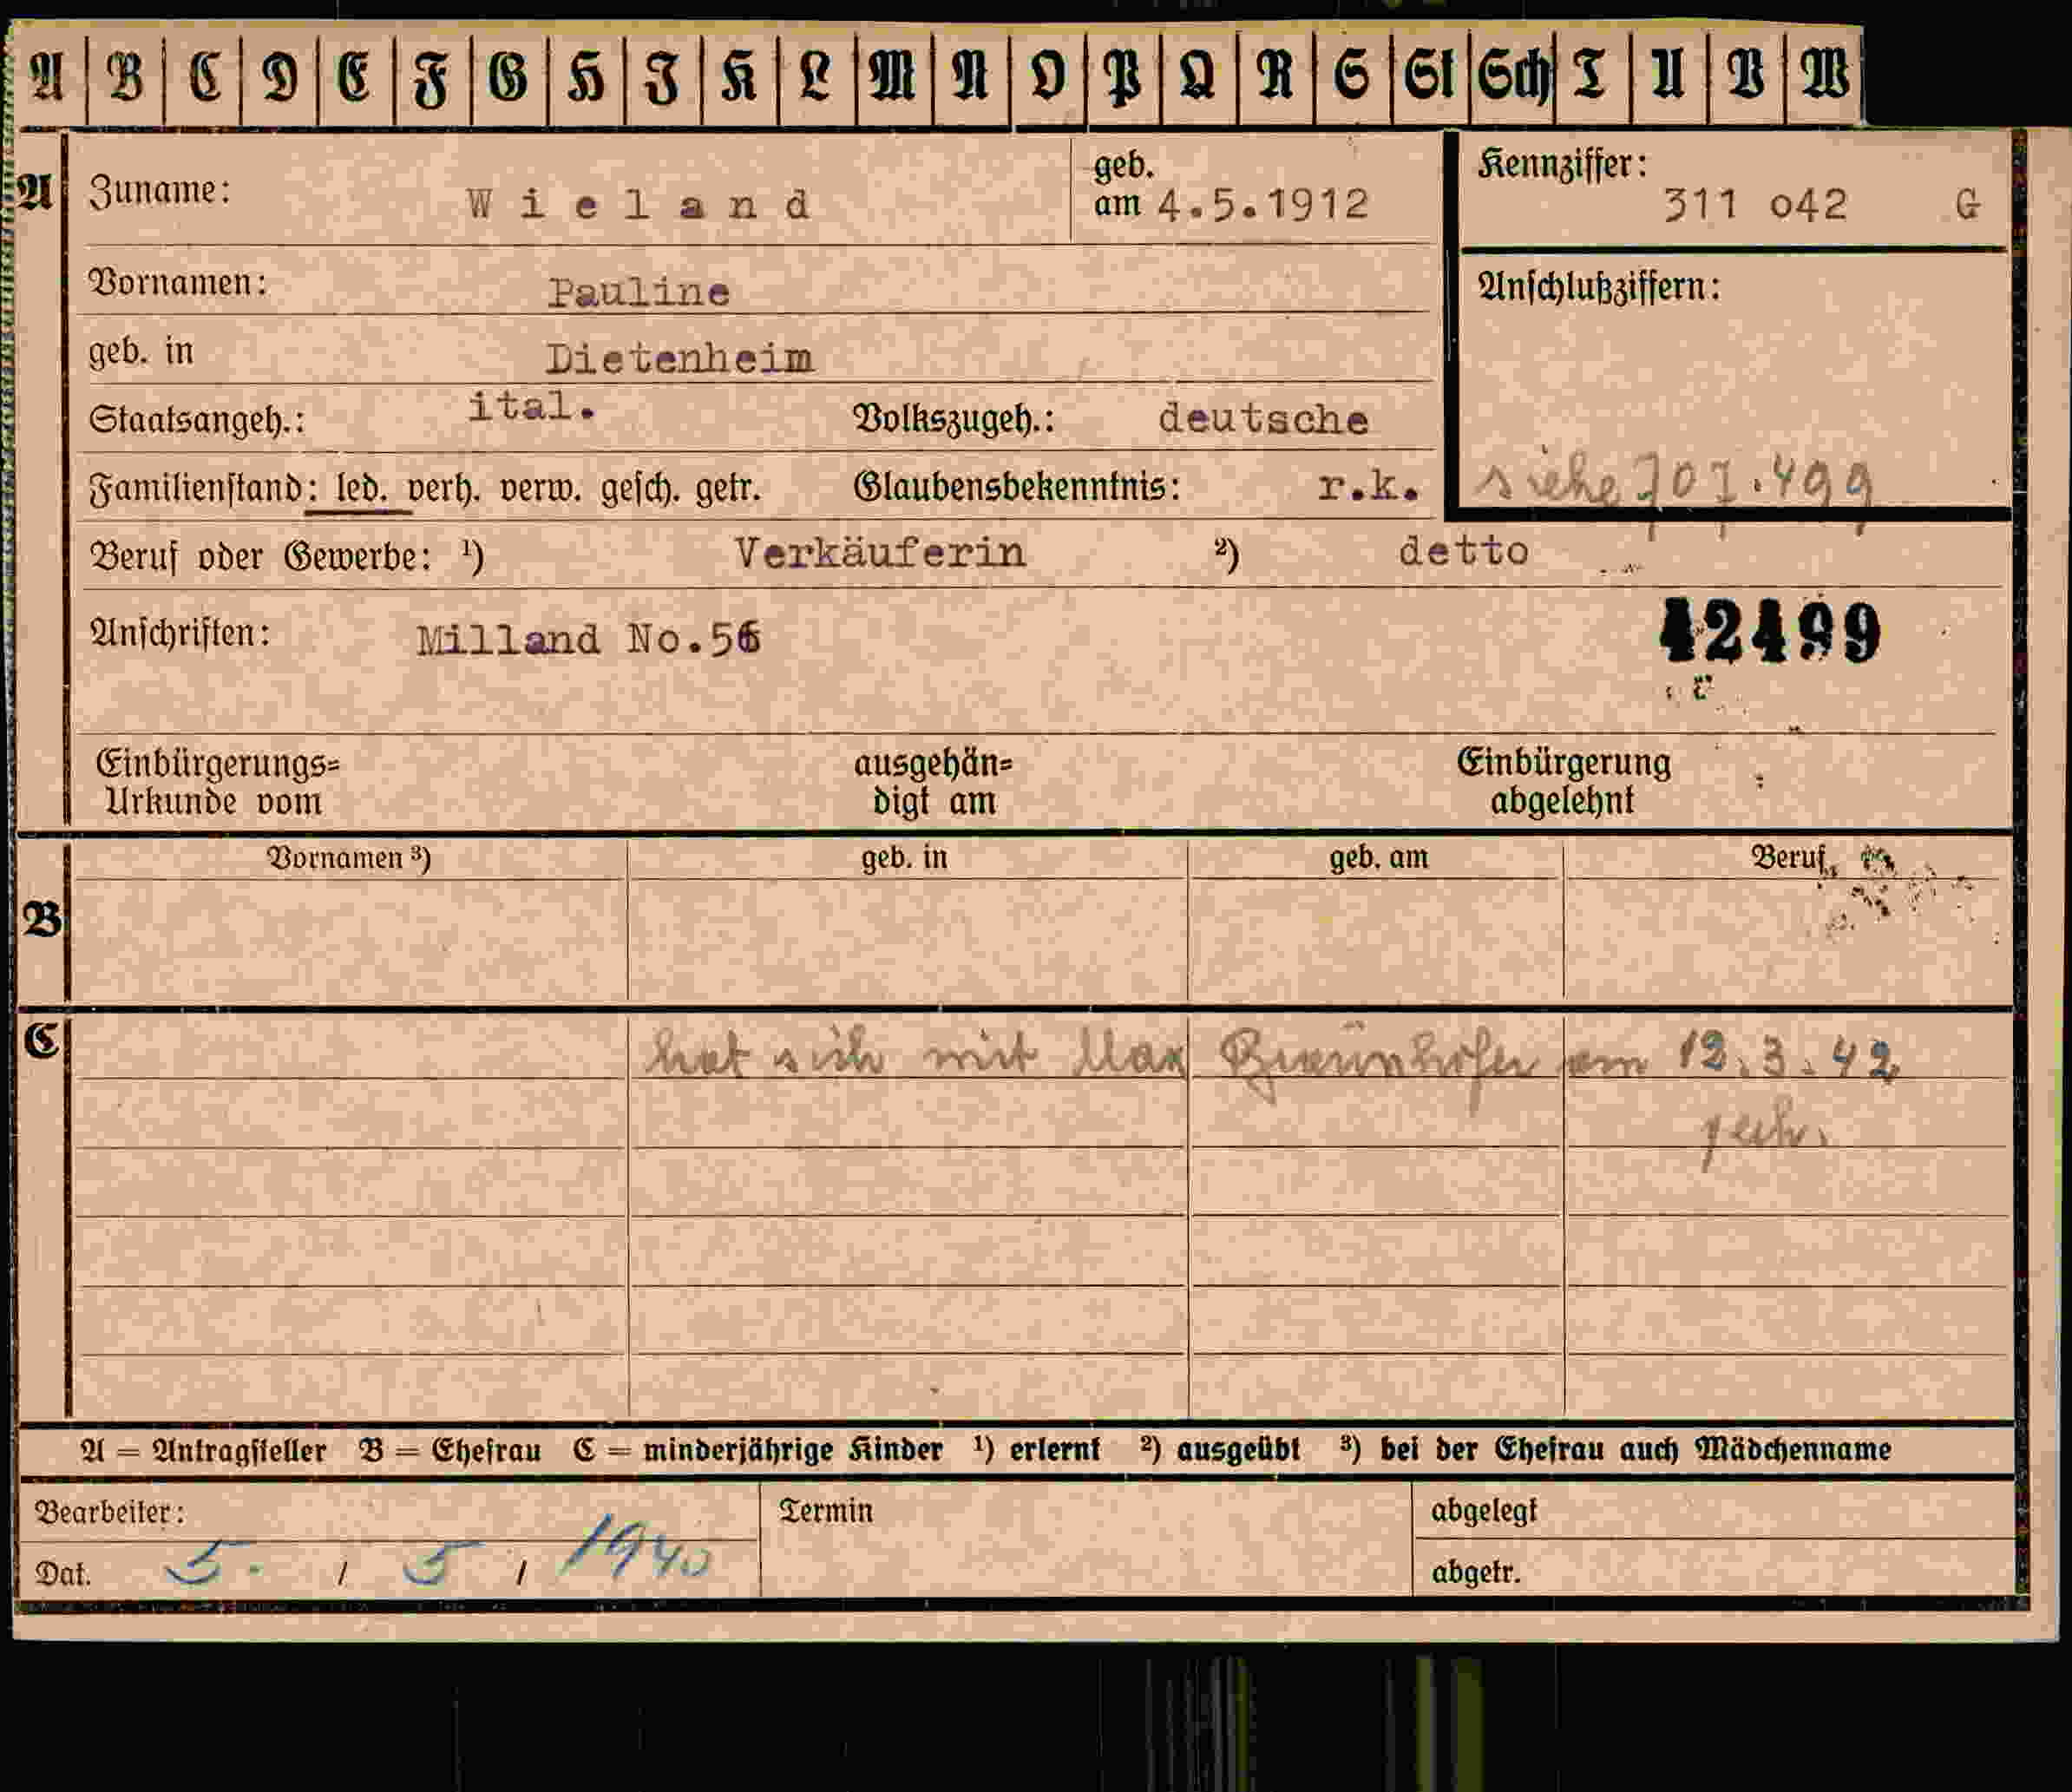 A B C D E F G H J K L M N O P Q R S St Sch T U V W
A Zuname: Wieland geb. am 4.5.1912 Kennziffer: 311 o42 G
Vornamen: Pauline Anschlußziffern:
geb. in Dietenheim
Staatsangeh.: ital. Volkszugeh.: deutsche
Familienstand: led. verh. verw. gesch. getr. Glaubensbekenntnis: r.k. siehe 707.499
Beruf oder Gewerbe: ¹) Verkäuferin ²) detto
Anschriften: Milland No.56 42499
Einbürgerungs= ausgehän= Einbürgerung :
Urkunde vom digt am abgelehnt
B Vornamen ³) geb. in geb. am Beruf
C hat sich mit Max am 12.3.42
A = Antragsteller B = Ehefrau C = minderjährige Kinder ¹) erlernt ²) ausgeübt ³) bei der Ehefrau auch Mädchenname
Bearbeiter: Termin abgelegt
Dat. 5. / 5 / 1940 abgetr.